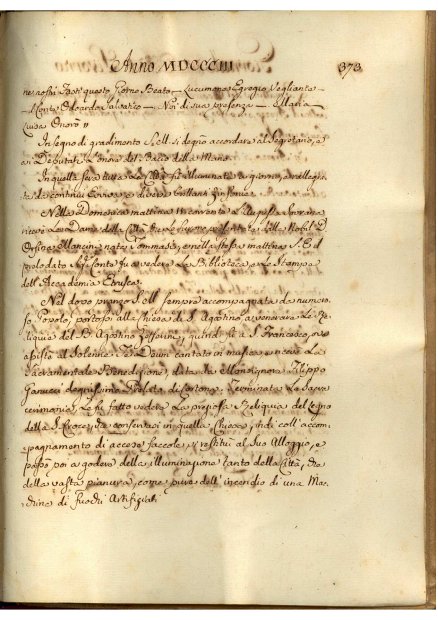 Anno MDCCCIII 373
questo Giorno Beato — Lucumone Egregio Vegliante —
— Conte Odoardo — Noi di sua presenza — Maria
Luisa Onorò
In segno di gradimento S. M. si degnò accordare al Segretario, e
ai Deputati l'onore del Bacio della Mano.
In quella sera tutta la Città fu illuminata a giorno, e rallegra
ta da continui Evviva e dive brillanti Sinfonie.
Nella Domenica mattina 11 corrente l'Augusta Sovrana
ricevè le Dame della Città nobil
Orsine Mancini nata Tommasi, e nella stessa mattina S. E. il
prolodato fu a vedere la Biblioteca, e la Stampa
dell'Accademia Etrusca.
Nel dopo pranzo S. M. sempre accompagnata da numero
so Popolo, portossi alla Chiesa di S. Agostino a venerare le Re
liquie del B. Agostino quindi fu a S. Francesco, ove
assistè al Solenne Te Deum cantato in musica, e ricevè la
Sacramentale Benedizione, data da Monsignore Filippo
Ganucci degnissimo Prelato di Cortona. Terminate le Sacre
cerimonie, le fu fatto vedere la preziosa Reliquia del Legno
della S. Croce, che conservasi in quella Chiesa, indi coll'accom
pagniamento di accese faccole, si restituì al Suo Alloggio, e
passò poi a godere della illuminazione tanto della Città, che
della vasta pianura, come pure dell'incendio di una Mac
china di fuochi Artifiziati